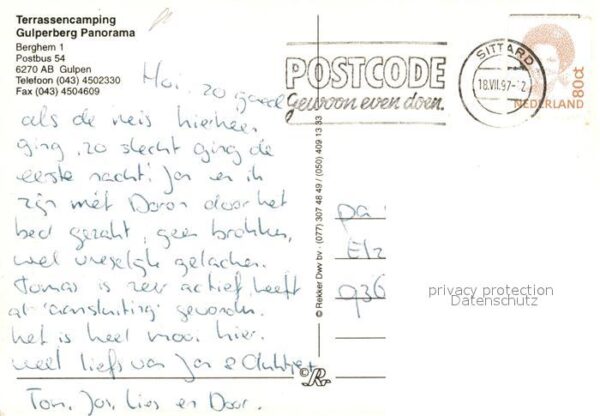 Terrassencamping
Gulperberg Panorama
Berghem 1
Postbus 54
6270 AB Gulpen
Telefoon (043) 4502330
Fax (043) 4504609
POSTCODE
Gewoon even doen.
SITTARD
18.VII.97
NEDERLAND
80ct
Hoi, zo goed
als de reis hierheen
ging, zo slecht ging de
eerste nacht! Jos en ik
zijn mét Doron door het
bed gezakt, geen brokken,
wel vreselijk gelachen.
Tomas is zeer actief, heeft
al 'aansluiting' gevonden.
Het is heel mooi hier.
Veel liefs van Jos &
Tom, Jos, Lies en Door.
© Rekker Dwv bv - (077) 307 48 49 / (050) 409 13 33
pa
Elz
936
privacy protection
Datenschutz
©